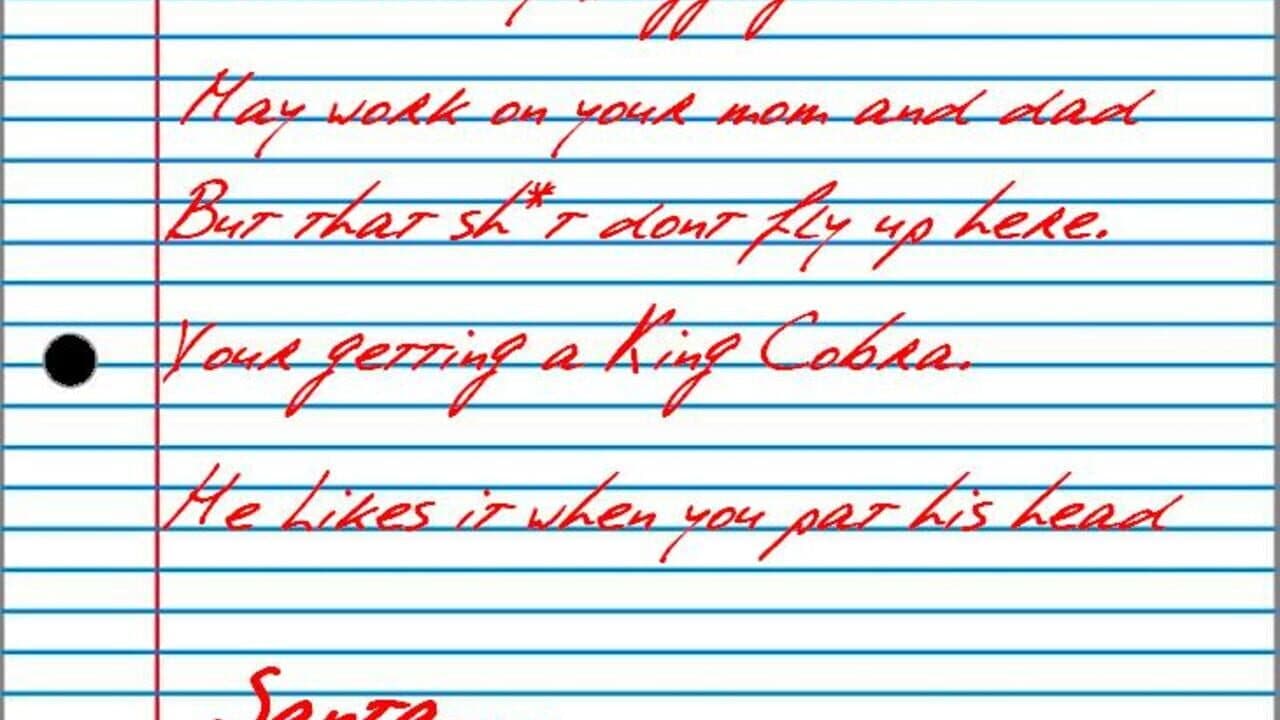 May work on your mom and dad
But that sh*t dont fly up here.
Your getting a King Cobra.
He likes it when you pat his head
Santa